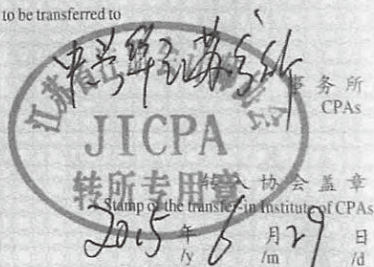 to be transferred to
中兴华江苏分所
事务所
CPAs
江苏省注册会计师协会
JICPA
转所专用章
转入协会盖章
Stamp of the transfer-in Institute of CPAs
2015年6月29日
/y /m /d